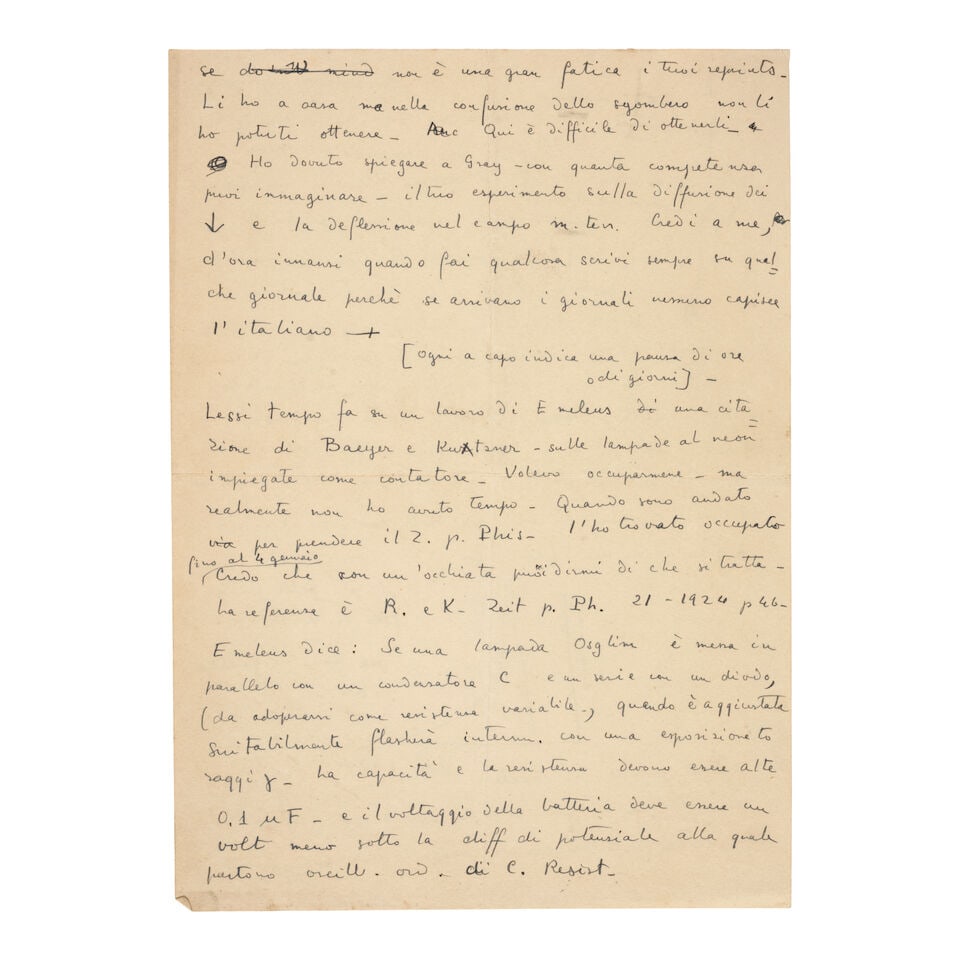 se do ... mind non è una gran fatica i tuoi reprints -
Li ho a casa ma nella confusione dello sgombero non li
ho potuti ottenere - Anc Qui è difficile di ottenerli -
Ho dovuto spiegare a Gray - con quanta competenza
puoi immaginare - il tuo esperimento sulla diffusione dei
↓ e la deflessione nel campo m. ter. Credi a me,
d'ora innanzi quando fai qualcosa scrivi sempre su qual=
che giornale perchè se arrivano i giornali nessuno capisce
l'italiano —+
[ogni a capo indica una pausa di ore
o di giorni] -
Lessi tempo fa su un lavoro di Emeleus di una cita=
zione di Baeyer e Kutzner - sulle lampade al neon
impiegate come contatore - Volevo occuparmene - ma
realmente non ho avuto tempo - Quando sono andato
via per prendere il Z. p. Phis - l'ho trovato occupato
fino al 4 gennaio
Credo che con un'occhiata puoi dirmi di che si tratta -
La referenza è B. e K - Zeit p. Ph. 21 - 1924 p 46 -
Emeleus dice: Se una lampada Osglim è messa in
parallelo con un condensatore C e in serie con un diodo,
(da adoperarsi come resistenza variabile -, quando è aggiustata
suitabilmente flasherà interm. con una esposizione to
raggi γ - La capacità e la resistenza devono essere alte
0.1 μF - e il voltaggio della batteria deve essere un
volt meno sotto la diff di potenziale alla quale
partono oscill. ord. di C. Resist -